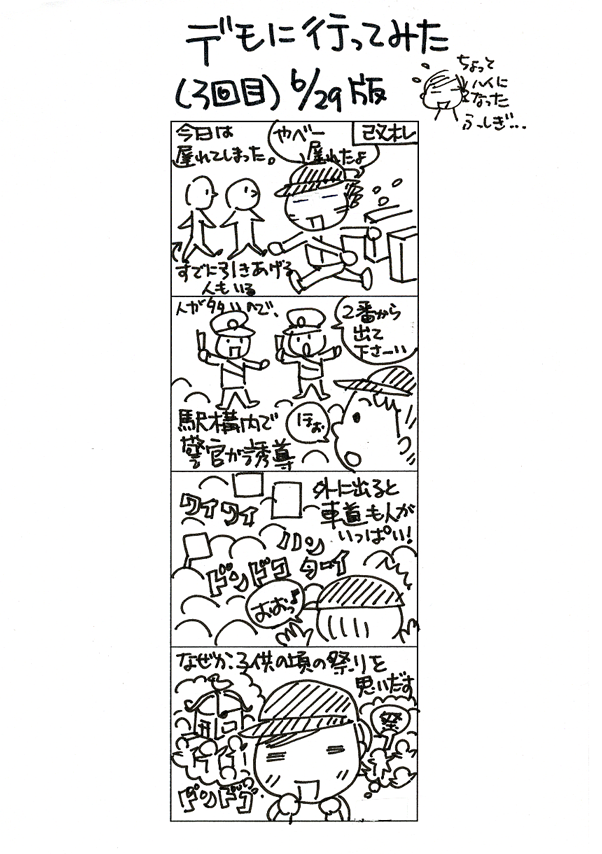 デモに行ってみた
(3回目) 6/29版
ちょって
ハイに
なった
ふしぎ…
今日は
遅れてしまった。
やべー
遅れたよ
改札
すでに引きあげる
人もいる
人が多いので、
2番から
出て
下さーい
駅構内で
警官が誘導
ほぉ
外に出ると
車道も人が
いっぱい!
ワイワイ
ハン
ターイ
ドンドコ
おおっ♪
なぜか、子供の頃の祭りを
思いだす
祭
ドンドコ